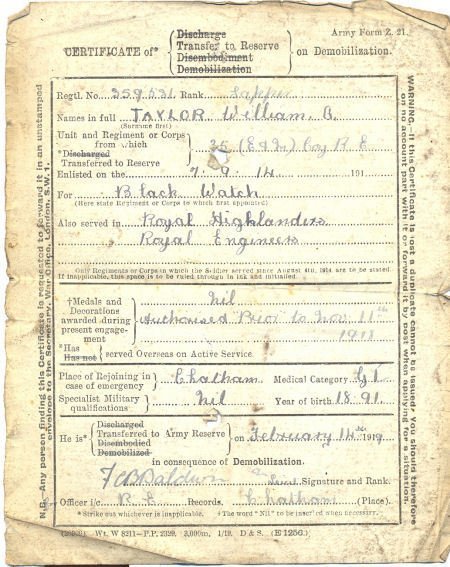 Army Form Z. 21.
CERTIFICATE of* { Discharge
Transfer to Reserve
Disembodiment
Demobilization } on Demobilization.
Regtl. No. 359531 Rank Sapper
Names in full TAYLOR William
(Surname first)
Unit and Regiment or Corps
from which
*Discharged
Transferred to Reserve
Coy R E
Enlisted on the 7. 9. 14 191
For Black Watch
(Here state Regiment or Corps to which first appointed)
Also served in Royal Highlanders
Royal Engineers
Only Regiments or Corps in which the Soldier served since August 4th, 1914, are to be stated.
If inapplicable, this space is to be ruled through in ink and initialled.
†Medals and
Decorations
awarded during
present engage-
ment
Nil
Authorised Prior to Nov. 11th
1918
*Has
Has not } served Overseas on Active Service.
Place of Rejoining in
case of emergency } Chatham Medical Category
Specialist Military
qualifications } Nil Year of birth 1891
He is* { Discharged
Transferred to Army Reserve
Disembodied
Demobilized } on February 14th 1919
in consequence of Demobilization.
Baldwin Signature and Rank.
Officer i/c R.E. Records. Chatham (Place).
*Strike out whichever is inapplicable. †The word "Nil" to be inserted when necessary.
Wt. W 8211—P.P. 2329. 3,000m. 1/19. D & S. (E 1256.)
N.B.—Any person finding this Certificate is requested to forward it in an unstamped
envelope to the Secretary, War Office, London, S.W. 1.
WARNING.—If this Certificate is lost a duplicate cannot be issued. You should therefore
on no account part with it or forward it by post when applying for a situation.